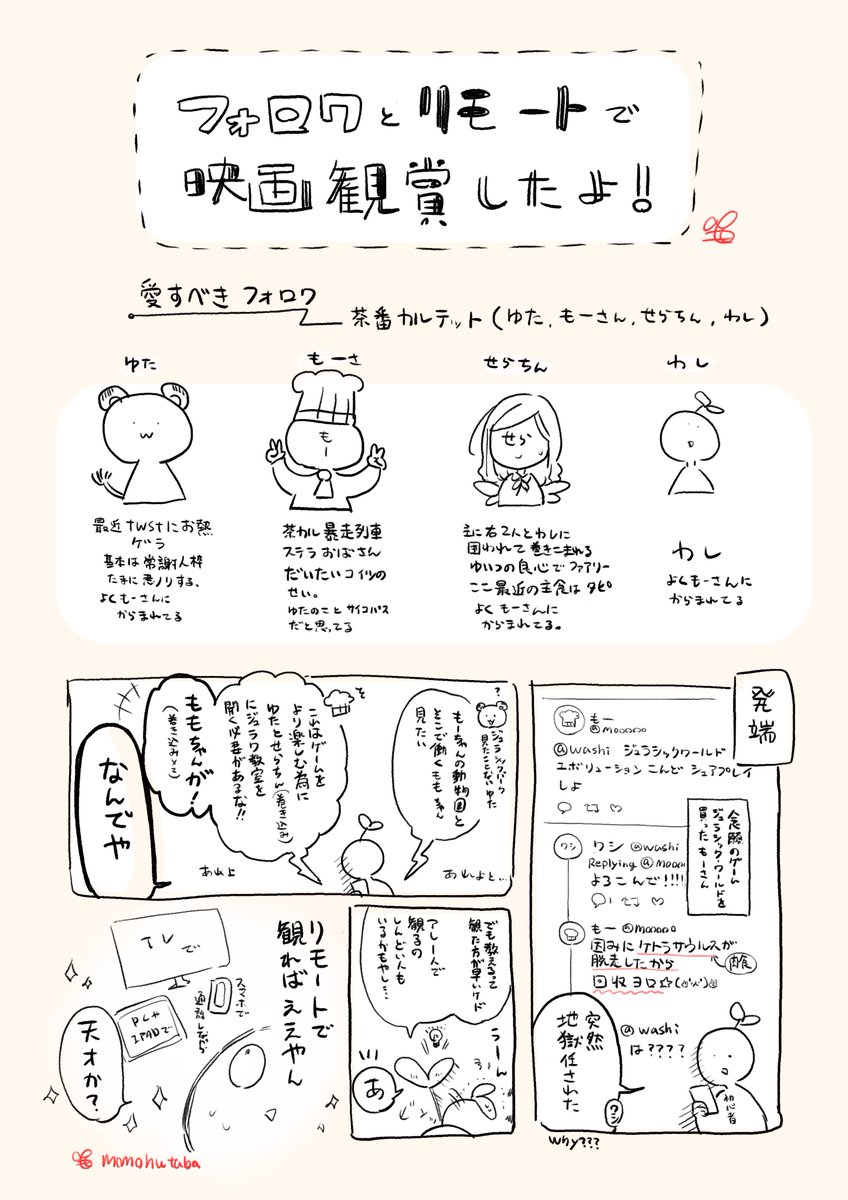 フォロワとリモートで
映画観賞したよ!!
愛すべきフォロワ
茶番カルテット(ゆた,もーさん,せらちん,わし)
ゆた
最近twstにお熱
ゲラ
基本は常識人枠
たまに悪ノリする、
よくもーさんに
からまれてる
もーさ
もー
茶カル暴走列車
ステラおばさん
だいたいコイツの
せい。
ゆたのことサイコパス
だと思ってる
せらちん
せら
主に右2人とわしに
囲われて巻きこまれる
ゆいつの良心でファアリー
ここ最近の主食はタピ
よくもーさんに
からまれてる。
わし
わし
よくもーさんに
からまれてる
発端
もー
@Mooooo
@washi ジュラシックワールド
エボリューション こんど シェアプレイ
しよ
念願のゲーム
ジュラシック・ワールドを
買ったもーさん
ワシ
ワシ @washi
Replying @moooo
よろこんで!!!!
もー @Mooooo
因みにケトラサウルスが
脱走したから
肉食
回収ヨロ
@washi
は????
突然
地獄任された
ワシ
初心者
why???
?
ジュラシックパーク
見たことないゆた
もーちゃんの動物園と
そこで働くももちゃん
見たい
あれよと…
これはゲームを
より楽しむ為に
ゆたとせらちん(巻き込み)
にジュラワ教室を
開く必要があるな!!
ももちゃんが!
(巻き込み×2)
あれよ
なんでや
でも教えるって
観た方が早いケド
アレ一人で
観るの
しんどい人も
いるかもやし…
うーん
あ
リモートで
観ればええやん
TVで
スマホで
通話しながら
PC+
IPADで
天才か?
momohutaba